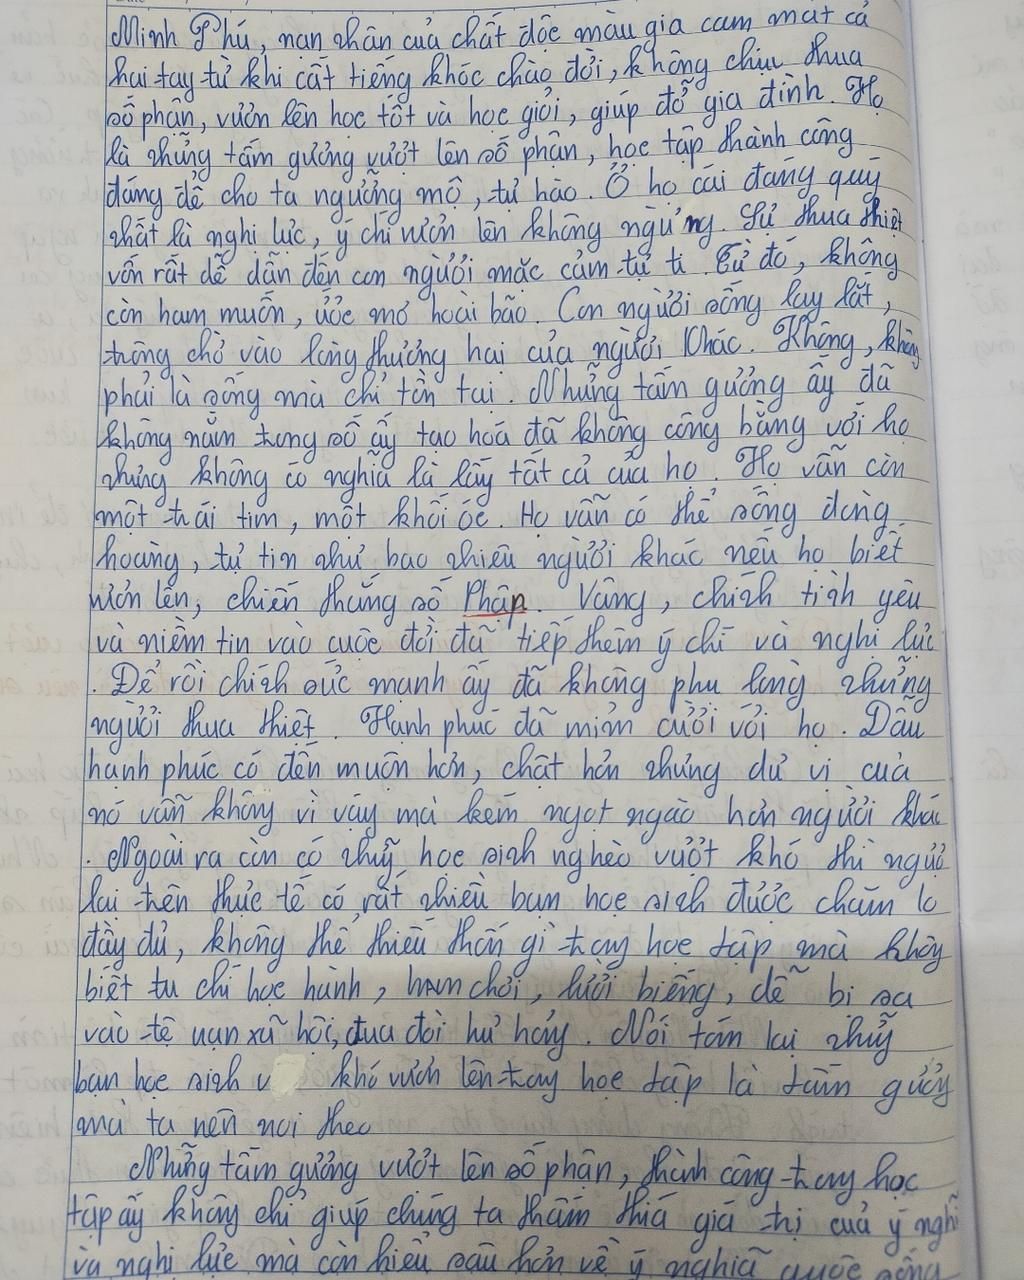 Minh Phú, nạn nhân của chất độc màu gia cam mất cả
hai tay từ khi cất tiếng khóc chào đời, không chịu thua
số phận, vươn lên học tốt và học giỏi, giúp đỡ gia đình. Họ
là những tấm gương vượt lên số phận, học tập thành công
đáng để cho ta ngưỡng mộ, tự hào. Ở họ cái đáng quý
nhất là nghị lực, ý chí vươn lên không ngừng. Sự thua thiệt
vốn rất dễ dẫn đến con người mặc cảm tự ti. Từ đó, không
còn ham muốn, ước mơ hoài bão. Con người sống lay lắt,
trông chờ vào lòng thương hại của người khác. Không, không
phải là sống mà chỉ tồn tại. Những tấm gương ấy đã
không nằm trong số ấy tạo hoá đã không công bằng với họ
nhưng không có nghĩa là lấy tất cả của họ. Họ vẫn còn
một trái tim, một khối óc. Họ vẫn có thể sống đàng
hoàng, tự tin như bao nhiêu người khác nếu họ biết
vươn lên, chiến thắng số Phận. Vâng, chính tình yêu
và niềm tin vào cuộc đời đã tiếp thêm ý chí và nghị lực
. Để rồi chính sức mạnh ấy đã không phụ lòng những
người thua thiệt. Hạnh phúc đã mỉm cười với họ. Dẫu
hạnh phúc có đến muộn hơn, chật hơn nhưng dư vị của
nó vẫn không vì vậy mà kém ngọt ngào hơn người khác
. Ngoài ra còn có những học sinh nghèo vượt khó thì ngược
lại trên thực tế có rất nhiều bạn học sinh được chăm lo
đầy đủ, không thể thiếu thốn gì trong học tập mà không
biết tu chí học hành, ham chơi, lười biếng, dễ bị sa
vào tệ nạn xã hội, đua đòi hư hỏng. Nói tóm lại những
bạn học sinh khó vươn lên trong học tập là tấm gương
mà ta nên noi theo
Những tấm gương vượt lên số phận, thành công trong học
tập ấy không chỉ giúp chúng ta thấm thía giá trị của ý nghĩ
và nghị lực mà còn hiểu sâu hơn về ý nghĩa cuộc sống